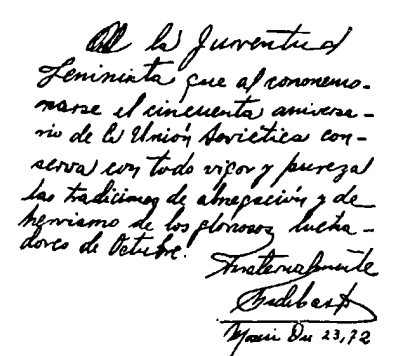 A la Juventud
Leninista que al conmemo-
rarse el cincuenta aniversa-
rio de la Unión Soviética con-
serva con todo vigor y pureza
las tradiciones de abnegación y de
heroismo de los gloriosos lucha-
dores de Octubre.
Fraternalmente
Fidel Castro
Dic 23, 72